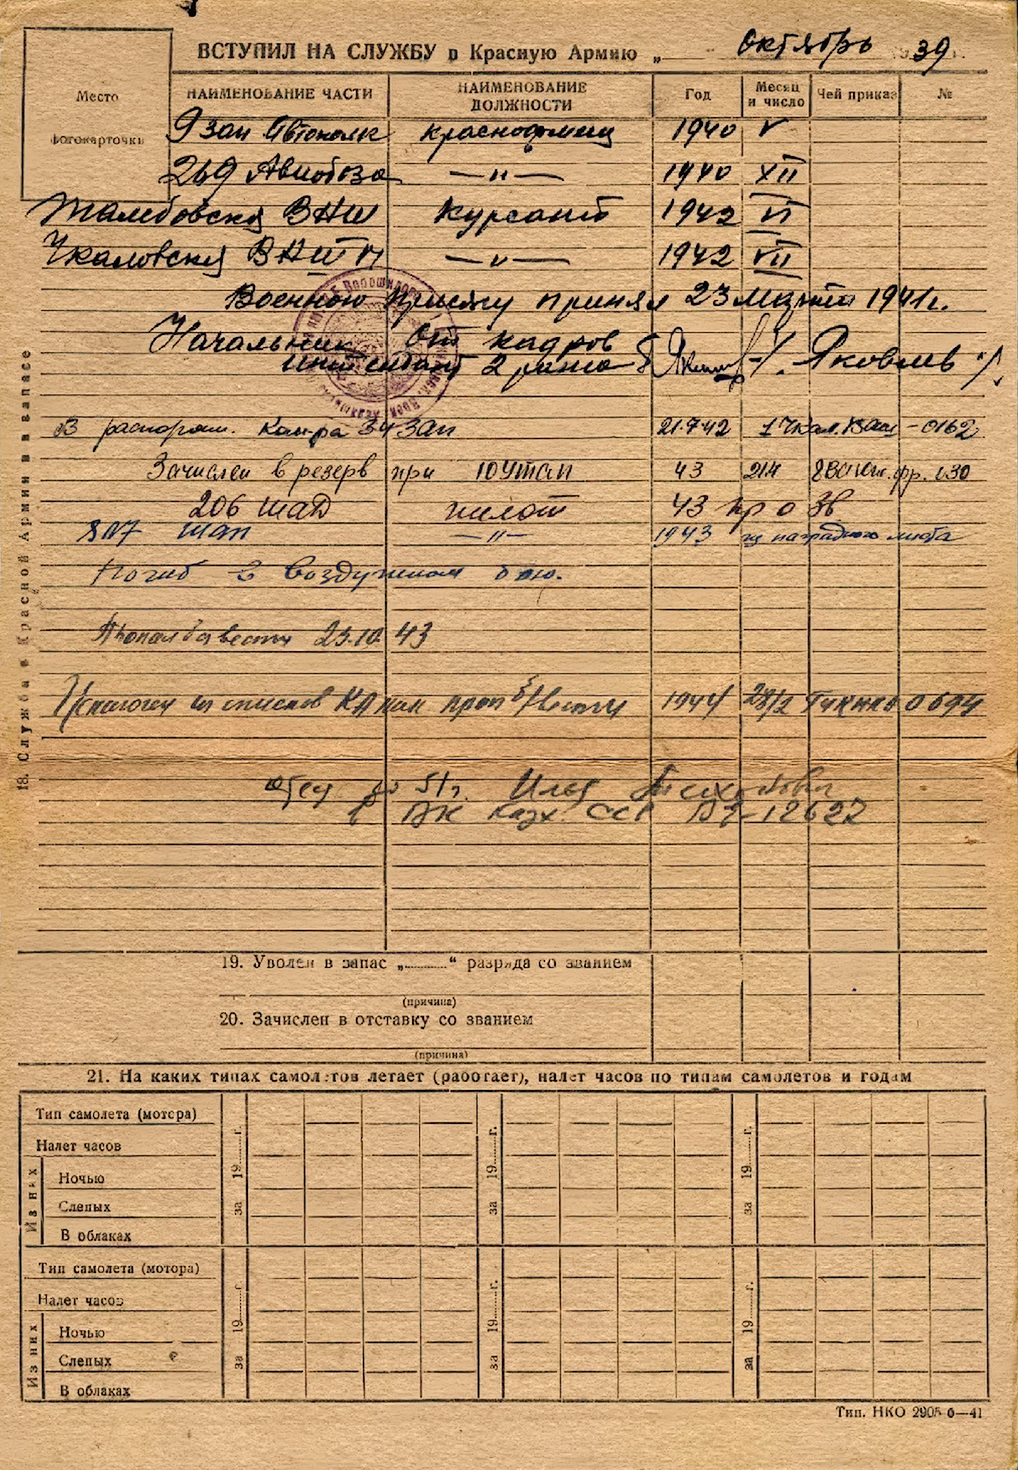 ВСТУПИЛ НА СЛУЖБУ в Красную Армию „ октябрь 1939 г.
Место
фотокарточки
НАИМЕНОВАНИЕ ЧАСТИ НАИМЕНОВАНИЕ ДОЛЖНОСТИ Год Месяц и число Чей приказ №
9 зап Автополк красноармеец 1940 V
269 Авиабаза —"— 1940 XII
Тамбовская ВАШ Курсант 1942 VI
Чкаловская ВАШП —"— 1942 VII
Военную присягу принял 23 марта 1941 г.
Начальник Отд кадров
интендант 2 ранга Яковлев
18. Служба в Красной Армии и в запасе
В распоряж. Ком-ра 34 ЗАП 21.7.42 1 Чкал. ВАШ -0162
Зачислен в резерв при 10 УТАП 43 21/4 8 ВА фр. 030
206 ШАД пилот 43 пр о ЗВ
807 шап —"— 1943 из наградного листа
Погиб в воздушном бою.
Пропал без вести 23.10.43
Исключен из списков КА как проп б/вести 1944 28/2 ГУК НКО 0694
в ВК Каз. ССР 12627
19. Уволен в запас „..........“ разряда со званием
(причина)
20. Зачислен в отставку со званием
(причина)
21. На каких типах самолетов летает (работает), налет часов по типам самолетов и годам
Тип самолета (мотора) за 19......г. за 19......г. за 19......г.
Налет часов
Из них
Ночью
Слепых
В облаках
Тип самолета (мотора) за 19......г. за 19......г. за 19......г.
Налет часов
Из них
Ночью
Слепых
В облаках
Тип. НКО 2905 6—41